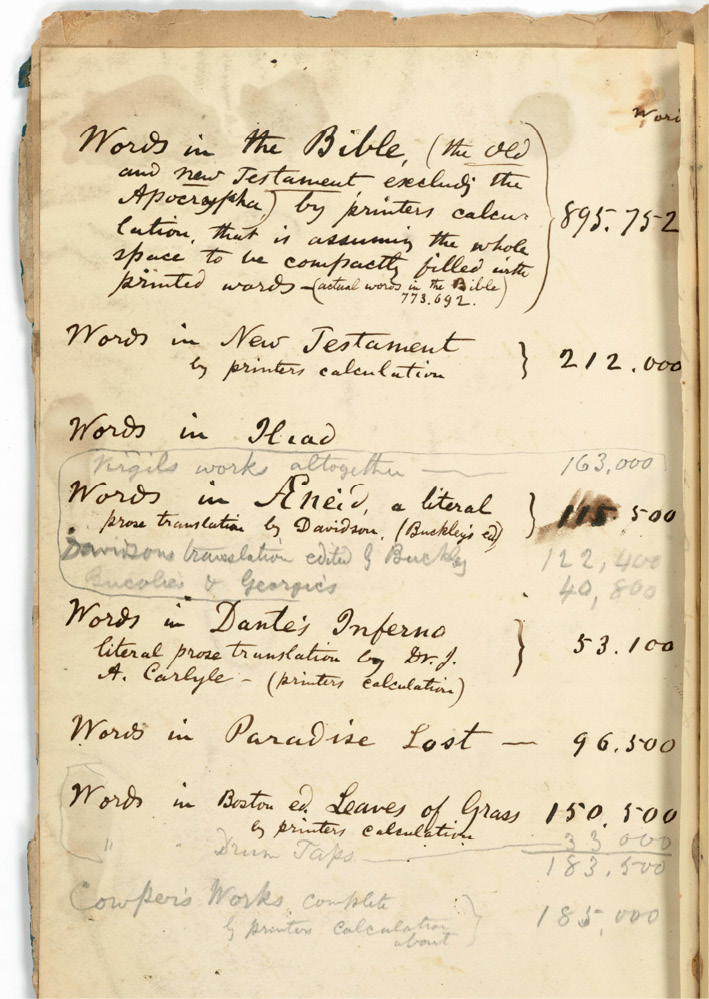 Words in the Bible, (the Old
and new Testament, excludg the
Apocrypha,) by printers calcu-
lation, that is assuming the whole
space to be compactly filled with
printed words — (actual words in the Bible)
773.692.
895.752
Words in New Testament
by printers calculation } 212.000
Words in Iliad
Virgils works altogether — 163,000
Words in Æneid, a literal
prose translation by Davidson, (Buckley's ed) } 115.500
Davidsons translation edited by Buckley 122,400
Bucolics & Georgics 40,800
Words in Dante's Inferno
literal prose translation by Dr. J. } 53.100
A. Carlyle — (printers calculation)
Words in Paradise Lost — 96.500
Words in Boston ed. Leaves of Grass 150,500
by printers calculation
" " Drum Taps — 33000
183,500
Cowper's Works, complete
by printers calculation } 185,000
about